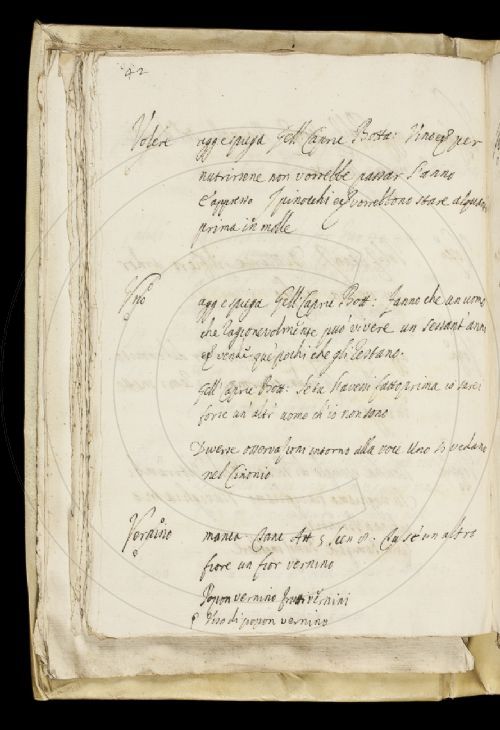 42
Volere agg. e spiega Gell. Capric. Bott: Vino e per
nutrirsene non vorrebbe passar l'anno
E appresso I pinocchi vorrebbono stare
prima in molle
Uno agg. e spiega Gell. Capric. Bott: Fanno che un uomo
che ragionevolmente può vivere un sessant'anni
vend' que' pochi che gli restano.
Gell. Capric. Bott: Se tu l'havessi fatto prima io sarei
forse un altr' uomo ch'io non sono
Diverse osservazioni intorno alla voce Uno si vedano
nel Cinonio
Vernino manca. Cant. Att. 5. Scen. 8. Eu s'è un altro
fiore un fior vernino
Popon vernino frutti vernini
Viso di popon vernino